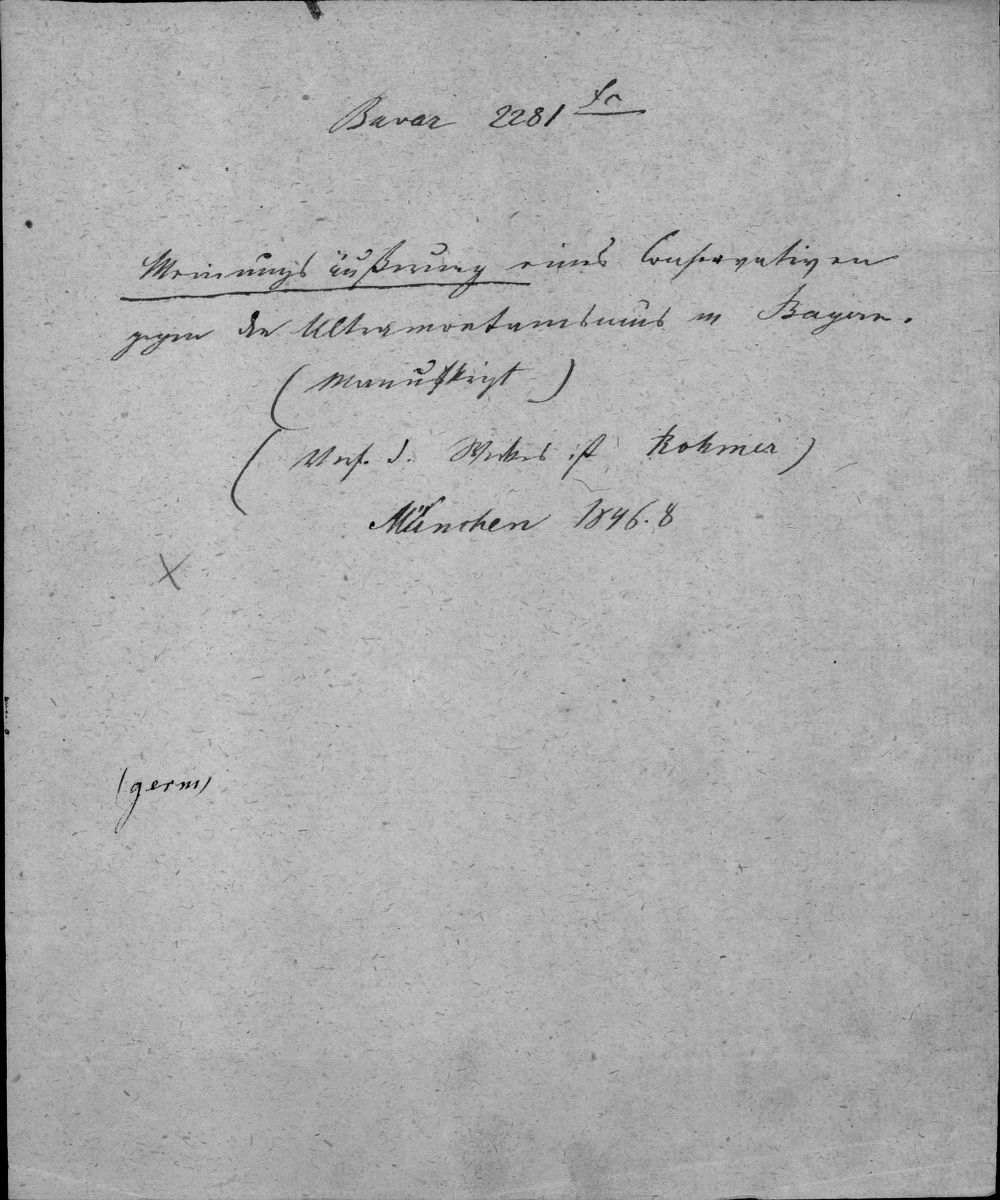 Bavar 2281 fn
Meinungsäußerung eines Conservativen
gegen den Ultramontanismus in Bayern.
(Manuskript)
(Verf. d. Werkes ist Rohmer)
München 1846. 8
X
(germ)